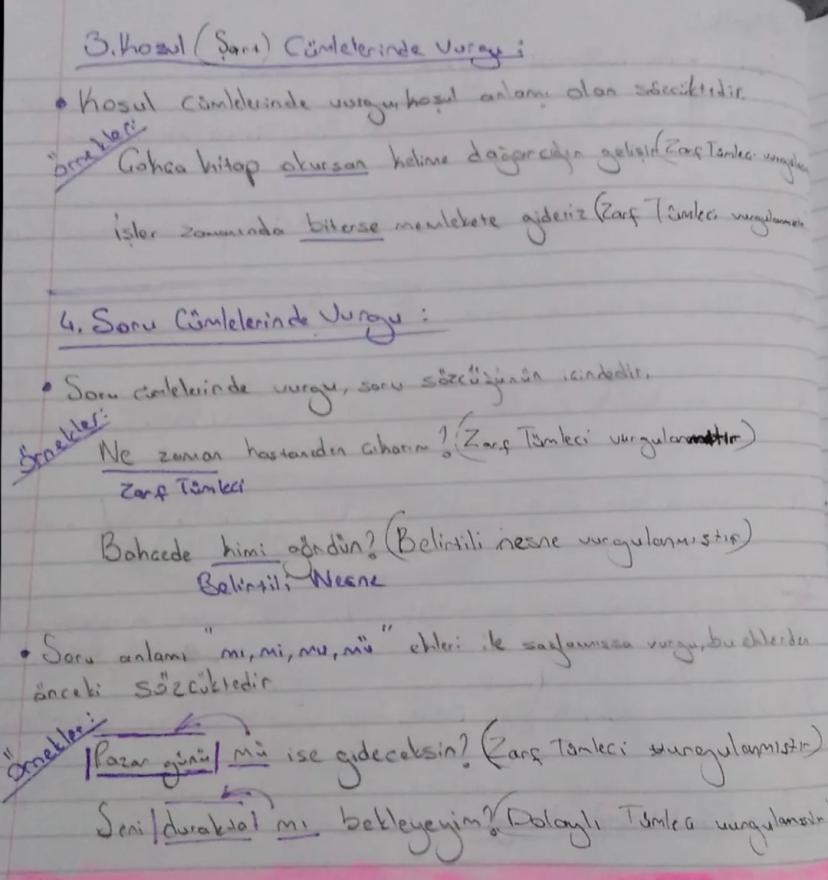 3. Koşul (Şart) Cümlelerinde Vurgu :
• Koşul cümlelerinde vurgu, koşul anlamı olan sözcüktedir.
Örnekler:
Çokça kitap okursan kelime dağarcığın gelişir (Zarf Tümleci vurgulan
İşler zamanında biterse memlekete gideriz (Zarf Tümleci vurgulanmış
4. Soru Cümlelerinde Vurgu :
• Soru cümlelerinde vurgu, soru sözcüğünün içindedir.
Örnekler:
Ne zaman hastaneden çıkarım? (Zarf Tümleci vurgulanmıştır)
Zarf Tümleci
Bahçede kimi gördün? (Belirtili nesne vurgulanmıştır)
Belirtili Nesne
• Soru anlamı "mı, mi, mu, mü" ekleri ile sağlanmışsa vurgu, bu eklerden
önceki sözcüktedir
Örnekler:
|Pazar günü| mü işe gideceksin? (Zarf Tümleci vurgulanmıştır)
Seni |durakta| mı bekleyeyim? (Dolaylı Tümleci vurgulanmıştır